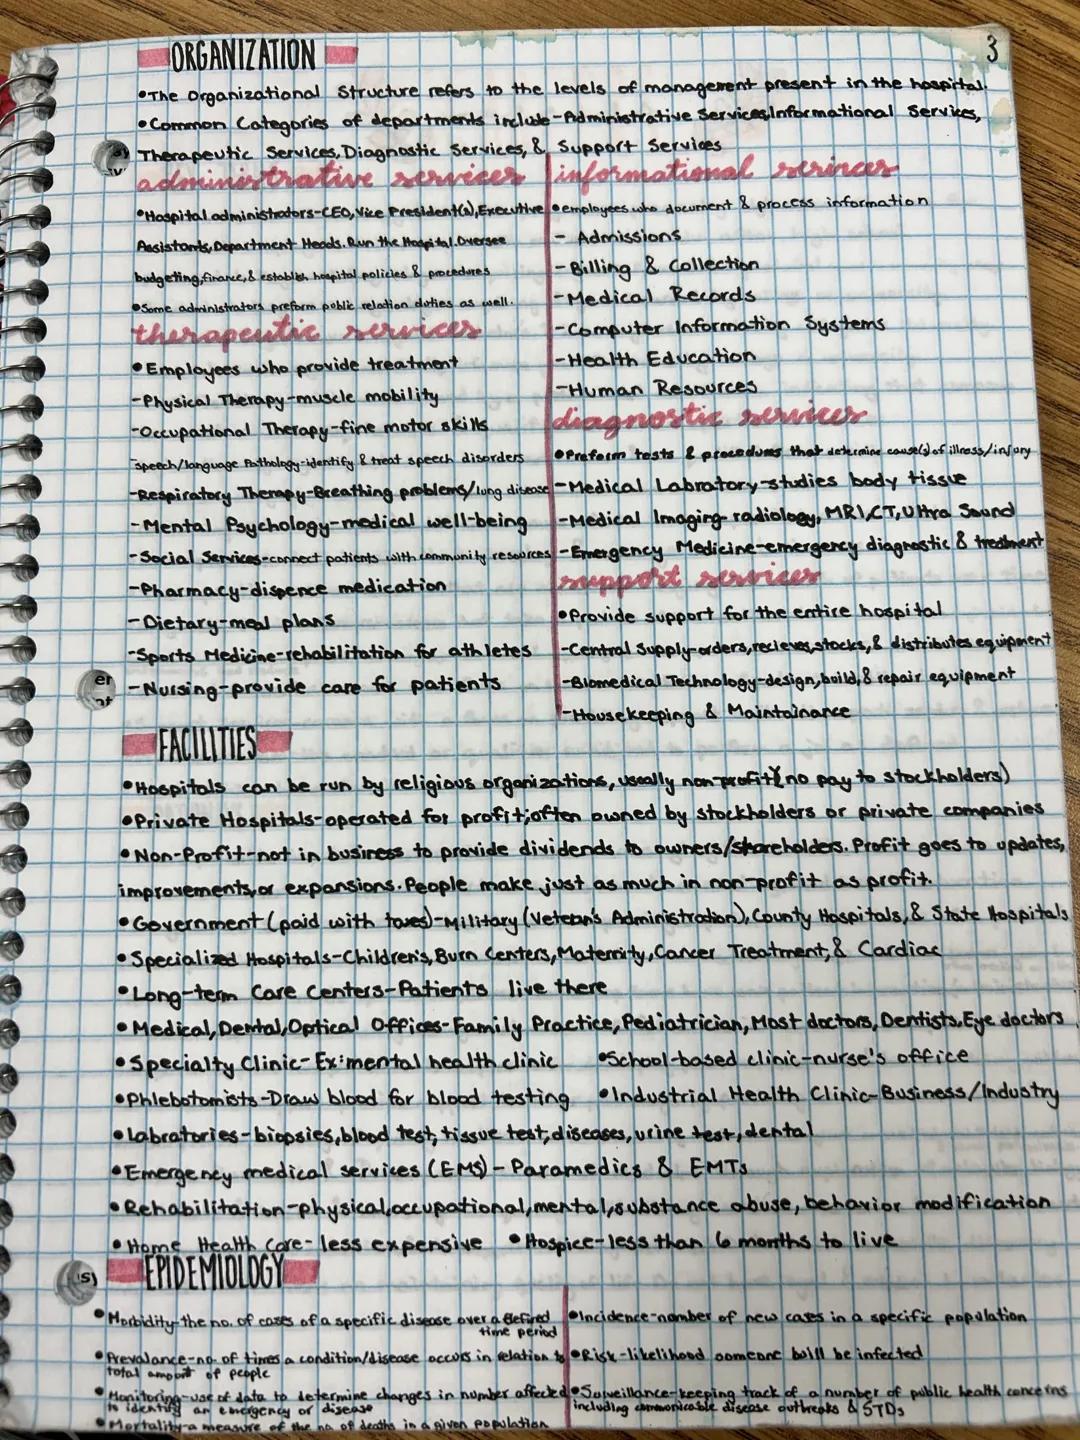 3
ORGANIZATION
•The Organizational Structure refers to the levels of management present in the hospital.
•Common Categories of departments include-Administrative Services,Informational Services,
Therapeutic Services,Diagnostic Services, & Support Services
administrative services
•Hospital administrators-CEO,Vice President(s),Executive
Assistants,Department Heads. Run the Hospital.Oversee
budgeting,finance,& establish hospital policies & procedures
•Some administrators preform public relation duties as well.
therapeutic services
•Employees who provide treatment
-Physical Therapy-muscle mobility
-Occupational Therapy-fine motor skills
-speech/language Pathology-identify & treat speech disorders
-Respiratory Therapy-Breathing problems/lung disease
-Mental Psychology-medical well-being
-Social Services-connect patients with community resources
-Pharmacy-dispence medication
-Dietary-meal plans
-Sports Medicine-rehabilitation for athletes
-Nursing-provide care for patients
informational services
•employees who document & process information
- Admissions
-Billing & Collection
-Medical Records
-Computer Information Systems
-Health Education
-Human Resources
diagnostic services
•Preform tests & procedures that determine cause(s) of illness/injury
-Medical Labratory-studies body tissue
-Medical Imaging-radiology, MRI,CT,Ultra Sound
-Emergency Medicine-emergency diagnostic & treatment
support services
•Provide support for the entire hospital
-Central Supply-orders,recieves,stocks,& distributes equipment
-Biomedical Technology-design,build,& repair equipment
-Housekeeping & Maintainance
FACILITIES
•Hospitals can be run by religious organizations, usually non-profit(no pay to stockholders)
•Private Hospitals-operated for profit;often owned by stockholders or private companies
•Non-Profit-not in business to provide dividends to owners/shareholders. Profit goes to updates,
improvements,or expansions.People make just as much in non-profit as profit.
•Government (paid with taxes)-Military (Veteran's Administration),County Hospitals,& State Hospitals
•Specialized Hospitals-Children's,Burn Centers,Maternity,Cancer Treatment,& Cardiac
•Long-term Care Centers-Patients live there
•Medical,Dental,Optical Offices-Family Practice,Pediatrician,Most doctors,Dentists,Eye doctors
•Specialty Clinic-Ex:mental health clinic •School-based clinic-nurse's office
•Phlebotomists-Draw blood for blood testing •Industrial Health Clinic-Business/Industry
•Labratories-biopsies,blood test,tissue test,diseases,urine test,dental
•Emergency medical services (EMS)-Paramedics & EMTs
•Rehabilitation-physical,occupational,mental,substance abuse,behavior modification
•Home Health Care-less expensive •Hospice-less than 6 months to live
EPIDEMIOLOGY
•Morbidity-the no. of cases of a specific disease over a defined
time period
•Prevalance-no. of times a condition/disease occurs in relation to
total amount of people
•Monitoring-use of data to determine changes in number affected
to identify an emergency or disease
•Mortality-a measure of the no. of deaths in a given population
•Incidence-number of new cases in a specific population
•Risk-likelihood someone will be infected
•Surveillance-keeping track of a number of public health concerns
including communicable disease outbreaks & STDs